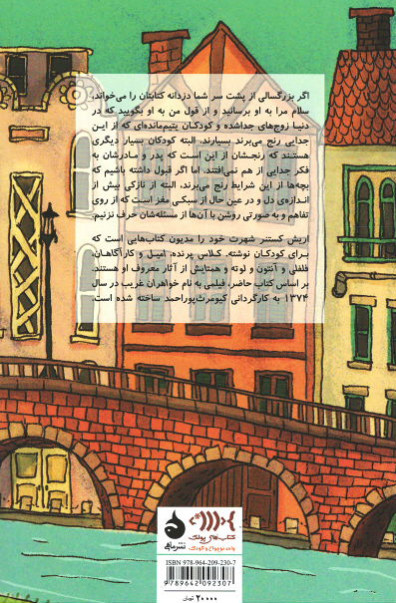 اگر بزرگسالی از پشت سر شما دزدانه کتابتان را می‌خواند،
سلام مرا به او برسانید و از قول من به او بگویید که در
دنیا زوج‌های جداشده و کودکان یتیم‌مانده‌ای که از این
جدایی رنج می‌برند بسیارند. البته کودکان بسیار دیگری
هستند که رنجشان از این است که پدر و مادرشان به
فکر جدایی از هم نمی‌افتند! اما اگر قبول داشته باشیم که
بچه‌ها از این شرایط رنج می‌برند، البته از نازکی بیش از
اندازه‌ی دل و در عین حال از سبکی مغز است که از روی
تفاهم و به صورتی روشن با آن‌ها از مسئله‌شان حرف نزنیم.
اریش کستنر شهرت خود را مدیون کتاب‌هایی است که
برای کودکان نوشته. کلاس پرنده، امیل و کارآگاهان،
فلفلی و آنتون و لوته و همتایش از آثار معروف او هستند.
بر اساس کتاب حاضر، فیلمی به نام خواهران غریب در سال
۱۳۷۴ به کارگردانی کیومرث پوراحمد ساخته شده است.
کتاب‌های پولک
واحد نوجوان و کودک
نشر ماهی
ISBN 978-964-209-230-7
9789642092307
۲۰۰۰۰ تومان